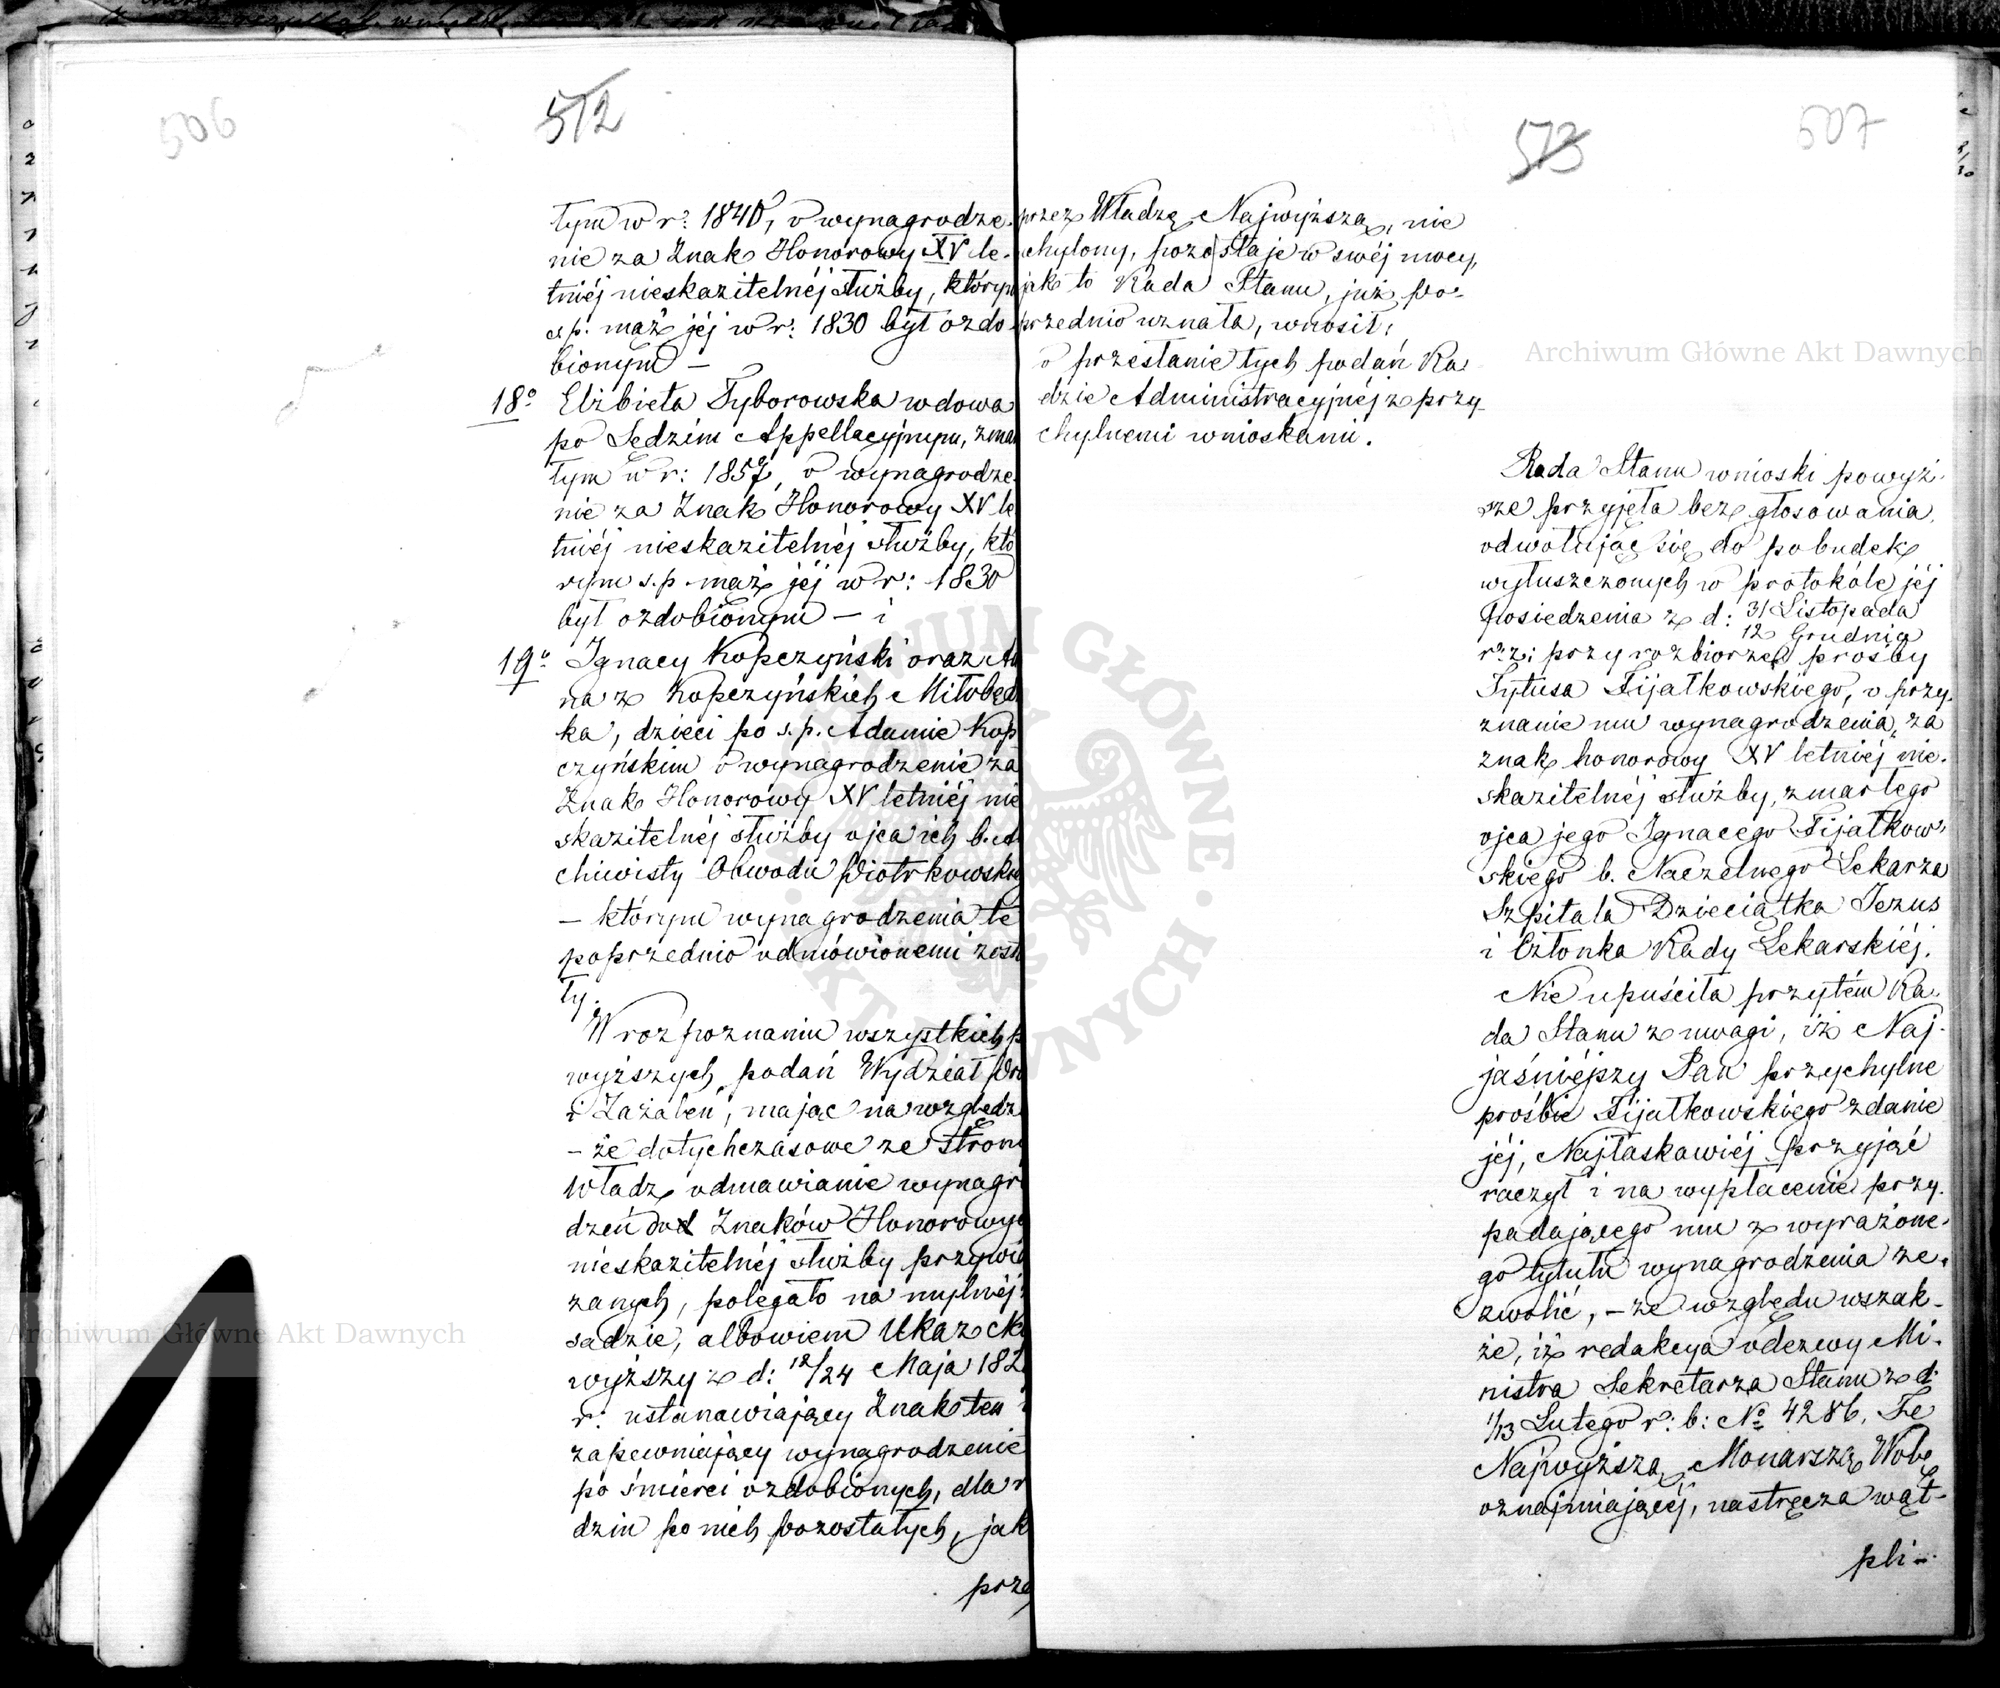 506
512
tym w r: 1840, o wynagrodze-
nie za Znak Honorowy XV le-
tniéj nieskazitelnéj służby, którym
ś.p. mąż jéj w r: 1830 był ozdo-
bionym —
18º Elżbieta Tyborowska wdowa
po Sędzim Appellacyjnym, zmar
tym w r: 1857, o wynagrodze-
nie za Znak Honorowy XV le
tniéj nieskazitelnéj służby, któ
rym ś.p. mąż jéj w r: 1830
był ozdobionym — i
19º Ignacy Kopczyński oraz An
na z Kopczyńskich Miłobęd
ka, dzieci po ś.p. Adamie Kop
czyńskim o wynagrodzenie za
Znak Honorowy XV letniéj nie
skazitelnéj służby ojca ich b. A
chiwisty Obwodu Piotrkowskieg
— którym wynagrodzenia te
poprzednio odmówionemi zosta
ły.
W rozpoznaniu wszystkich p
wyższych podań Wydział Pro
i Zażaleń, mając na względzi
— że dotychczasowe ze strony
Władz odmawianie wynagro
dzeń do Znaków Honorowych
nieskazitelnéj służby przywią
zanych, polegało na mylnéj
sadzie, albowiem Ukaz
wyższy z d: 12/24 Maja 182
r: ustanawiający Znak ten i
zapewniający wynagrodzenie
po śmierci ozdobionych, dla r
dzin po nich pozostałych, jak
prze
573
507
przez Władzę Najwyższą, nie
chylony, pozostaje w swéj mocy,
jak to Rada Stanu, już po-
przednio uznała, wnosił:
o przesłanie tych podań Ra
dzie Administracyjnéj z przy-
chylnemi wnioskami.
Rada Stanu wnioski powyż-
sze przyjęła bez głosowania,
odwołując się do pobudek
wyłuszczonych w protokóle jéj
Posiedzenia z d: 31 Listopada
12 Grudnia
r: z: przy rozbiorze prośby
Tytusa Fijałkowskiego, o przy-
znanie mu wynagrodzenia, za
znak honorowy XV letniéj nie-
skazitelnéj służby, zmarłego
ojca jego Ignacego Fijałkow-
skiego b. Naczelnego Lekarza
Szpitala Dzieciątka Jezus
i Członka Rady Lekarskiéj.
Nie upuściła przytém Ra-
da Stanu z uwagi, iż Naj-
jaśniéjszy Pan przychylne
prośbie Fijałkowskiego zdanie
jéj, Najłaskawiéj przyjąć
raczył i na wypłacenie przy-
padającego mu z wyrażone-
go tytułu wynagrodzenia ze-
zwolić, — ze względu wszak-
że, iż redakcya odezwy Mi-
nistra Sekretarza Stanu z d:
1/13 Lutego r: b: Nº 4286, Tę
Najwyższą Monarszą Wolę
oznajmiającéj, nastręcza wąt-
pli-
Archiwum Główne Akt Dawnych
Archiwum Główne Akt Dawnych
ARCHIWUM GŁÓWNE · AKT DAWNYCH ·